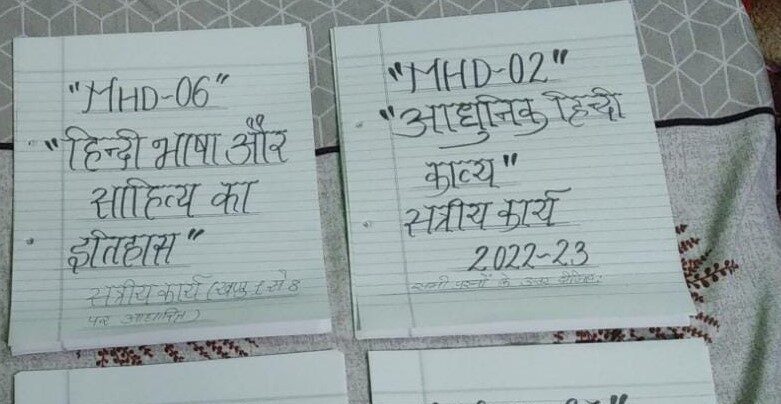 "MHD-06"
"हिन्दी भाषा और
साहित्य का
इतिहास"
सत्रीय कार्य (खण्ड 1 से 8
पर आधारित)
"MHD-02"
"आधुनिक हिन्दी
काव्य"
सत्रीय कार्य
2022-23
सभी प्रश्नों के उत्तर दीजिए: